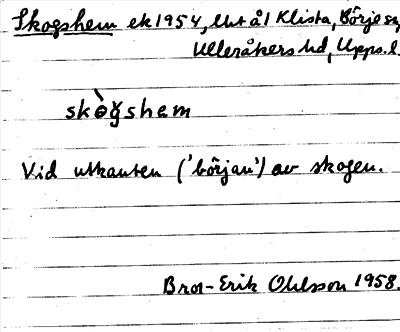 Skogshem ek 1954, Utål Klista, Börje sn,
Ulleråkers hd, Upps. l.
skògshem
Vid utkanten ('början') av skogen.
Bror-Erik Ohlsson 1958.